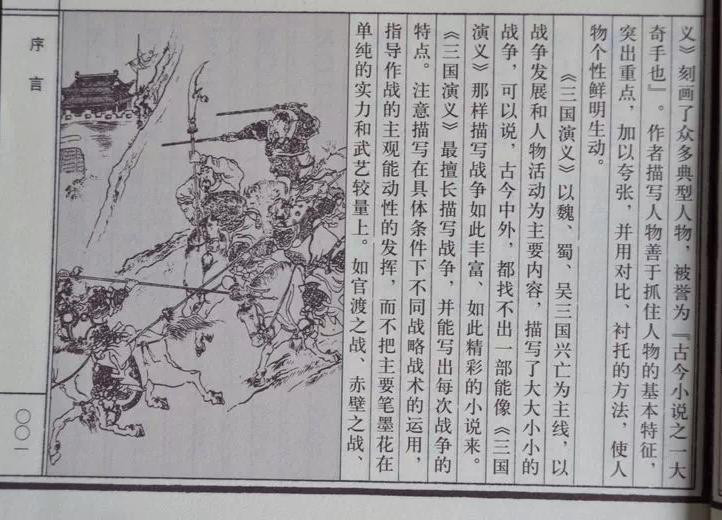 义》刻画了众多典型人物，被誉为『古今小说之一大
奇手也』。作者描写人物善于抓住人物的基本特征，
突出重点，加以夸张，并用对比、衬托的方法，使人
物个性鲜明生动。
《三国演义》以魏、蜀、吴三国兴亡为主线，以
战争发展和人物活动为主要内容，描写了大大小小的
战争，可以说，古今中外，都找不出一部能像《三国
演义》那样描写战争如此丰富、如此精彩的小说来。
《三国演义》最擅长描写战争，并能写出每次战争的
特点。注意描写在具体条件下不同战略战术的运用，
指导作战的主观能动性的发挥，而不把主要笔墨花在
单纯的实力和武艺较量上。如官渡之战、赤壁之战、
序言
〇〇一